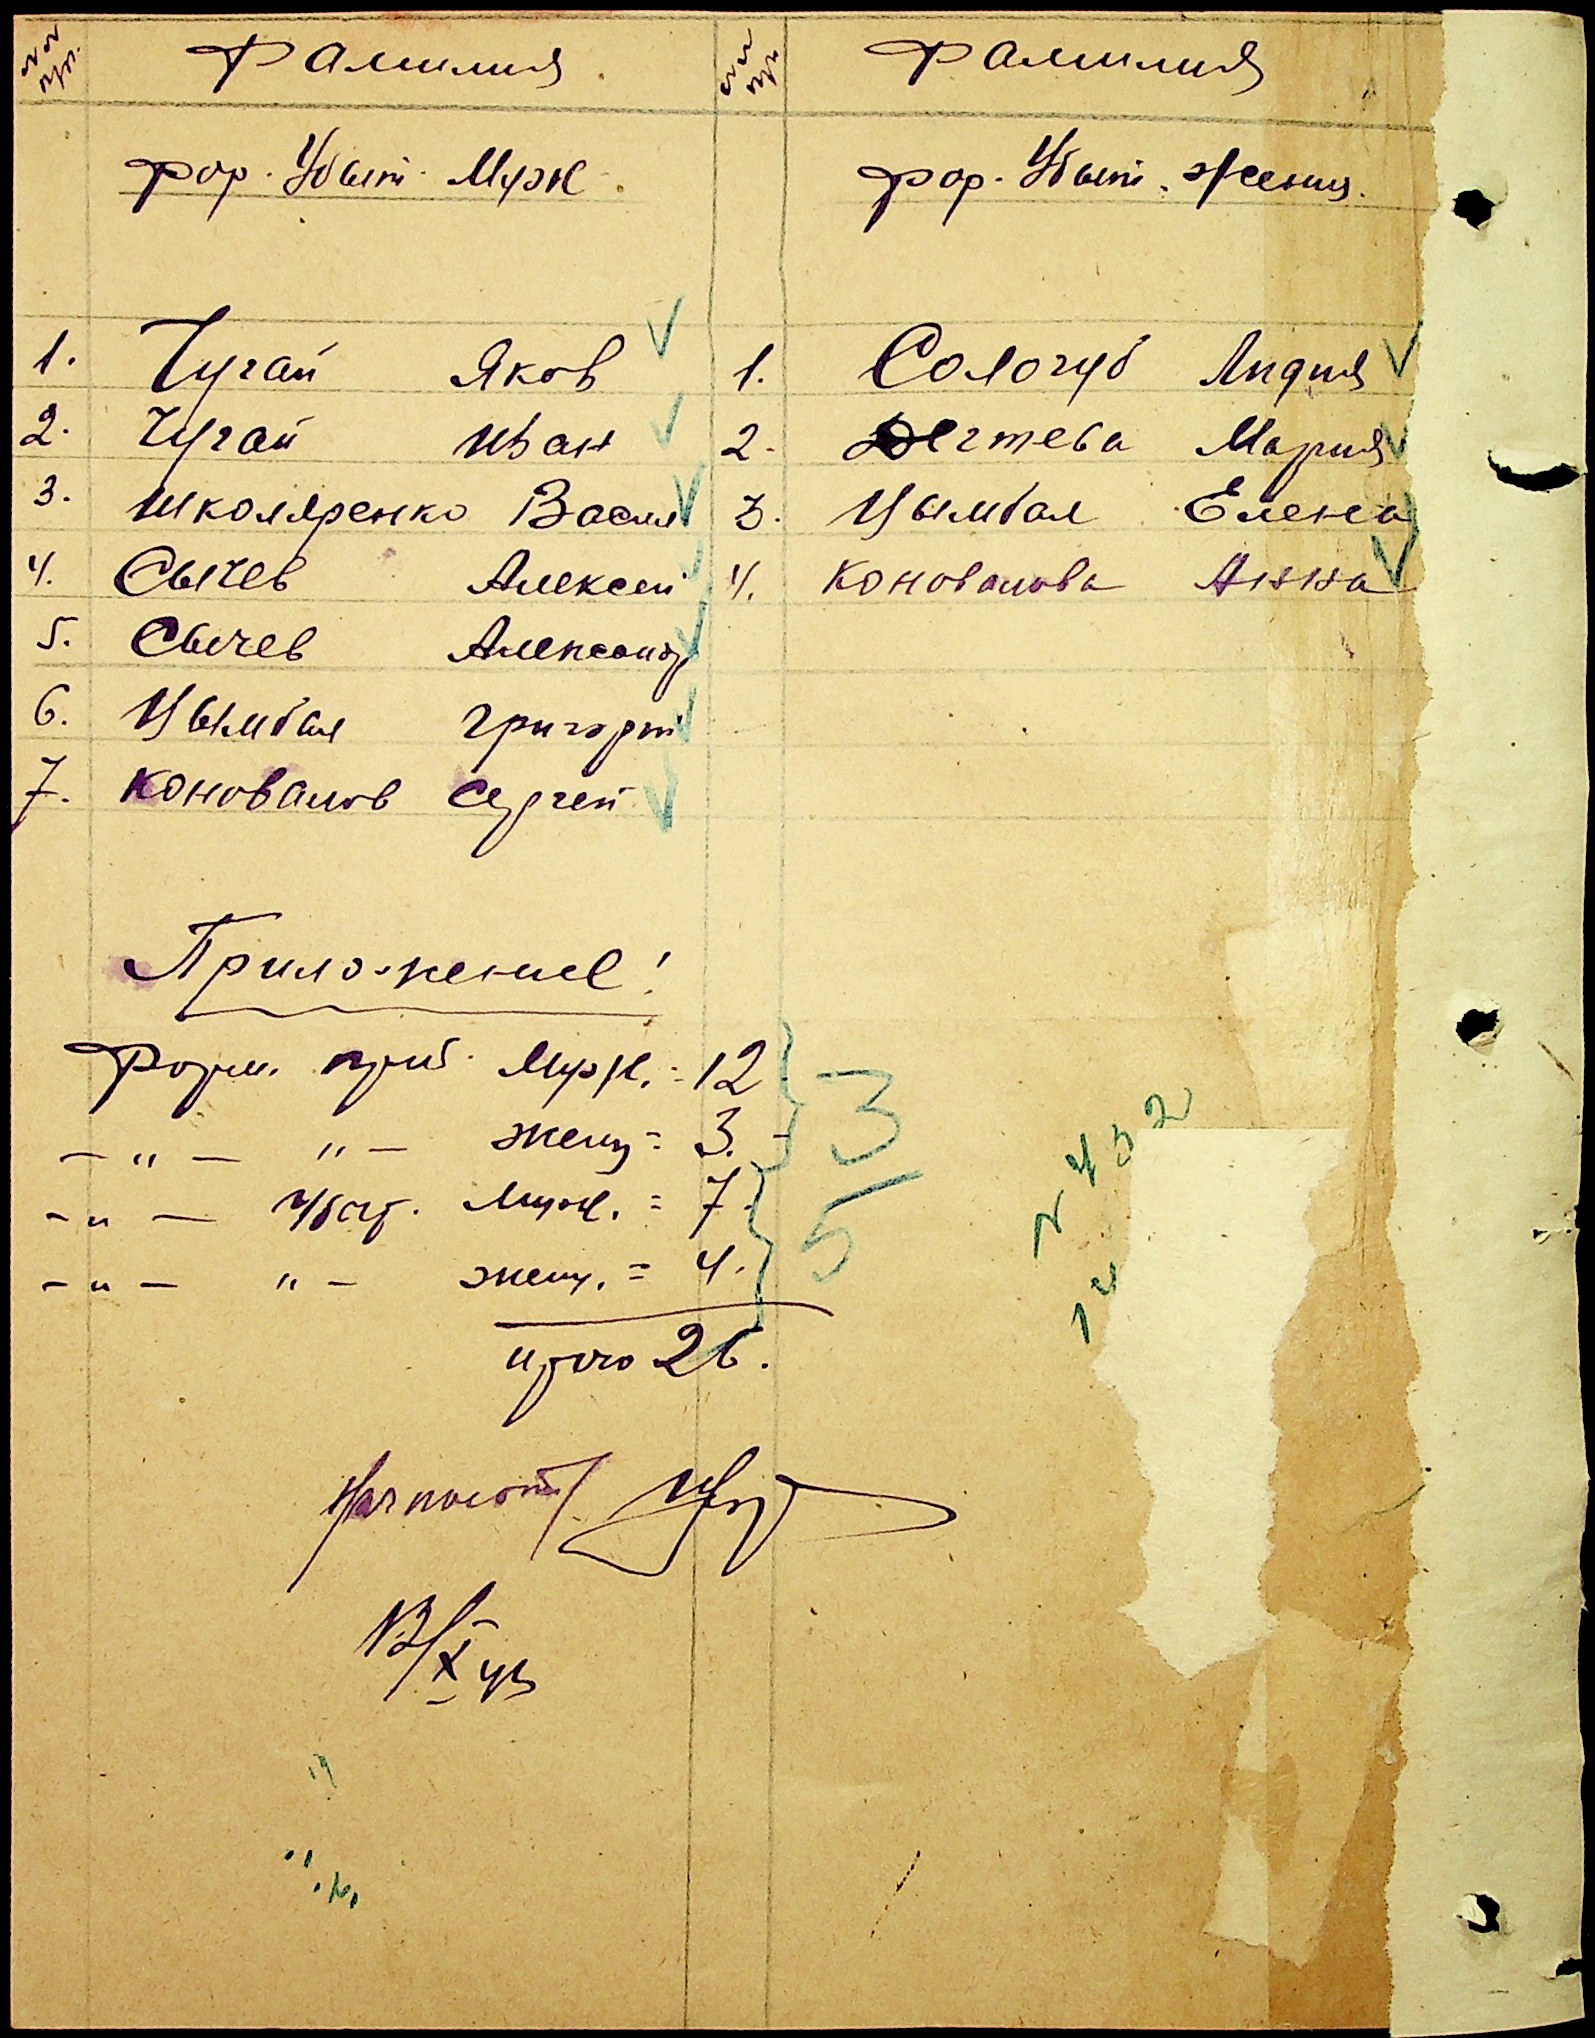 №№ пр. Фамилия №№ пр. Фамилия
фор. Убыт. Муж. фор. Убыт. Женщ.
1. Чугай Яков 1. Сологуб Лидия
2. Чугай Иван 2. Дегтева Мария
3. Школяренко Васил 3. Цымбал Елена
4. Сычев Алексей 4. Коновалова Анна
5. Сычев Александр
6. Цымбал Григорий
7. Коновалов Сергей
Приложение!
Форм. приб. Муж. = 12
— „ — „ — женщ = 3. 3
— „ — Убыт. Муж. = 7. 5
— „ — „ — женщ. = 4.
итого 26.
N 432
14
Начпаспорт
13/X 45